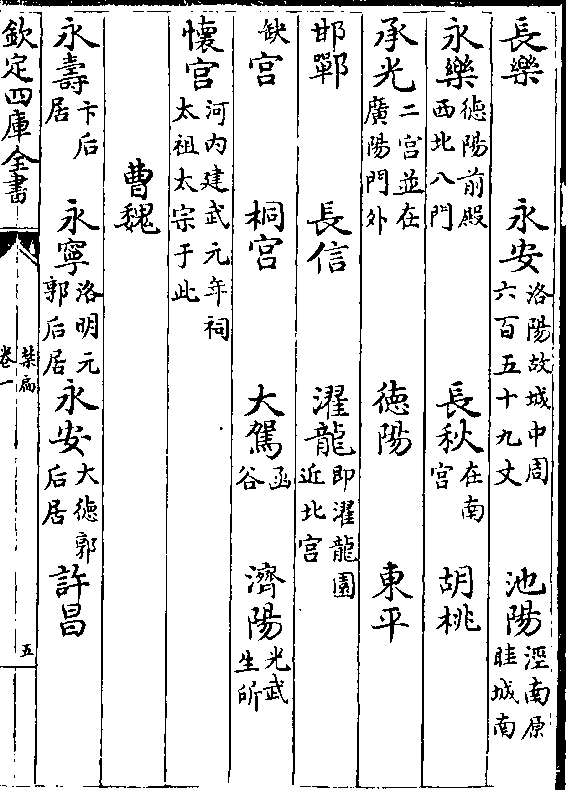 長樂 永安洛陽故城中周六百五十九丈 池陽涇南原眭城南
永樂德陽前殿西北八門 長秋在南宮 胡桃
承光二宮並在廣陽門外 德陽 東平
邯鄲 長信 濯龍即濯龍園近北宮
缺宮 桐宮 大駕函谷 濟陽光武生所
懷宮河内建武元年祠太祖太宗于此
曹魏
永壽卞后居 永寧洛明元郭后居 永安大德郭后居 許昌
欽定四庫全書 禁扁卷一 五